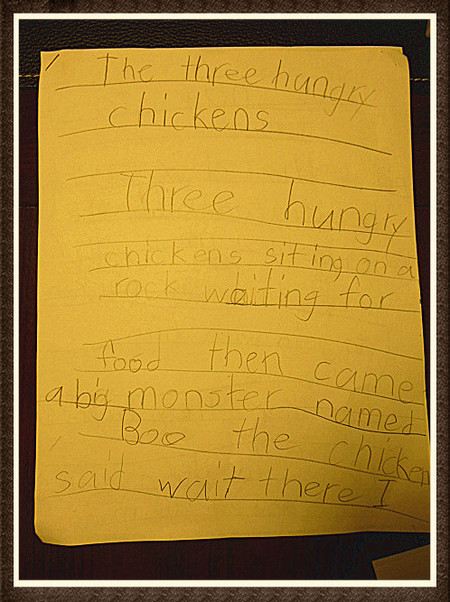 The three hungry
chickens
Three hungry
chickens siting on a
rock waiting for
food then came
a big monster named
Boo the chicken
said wait there I